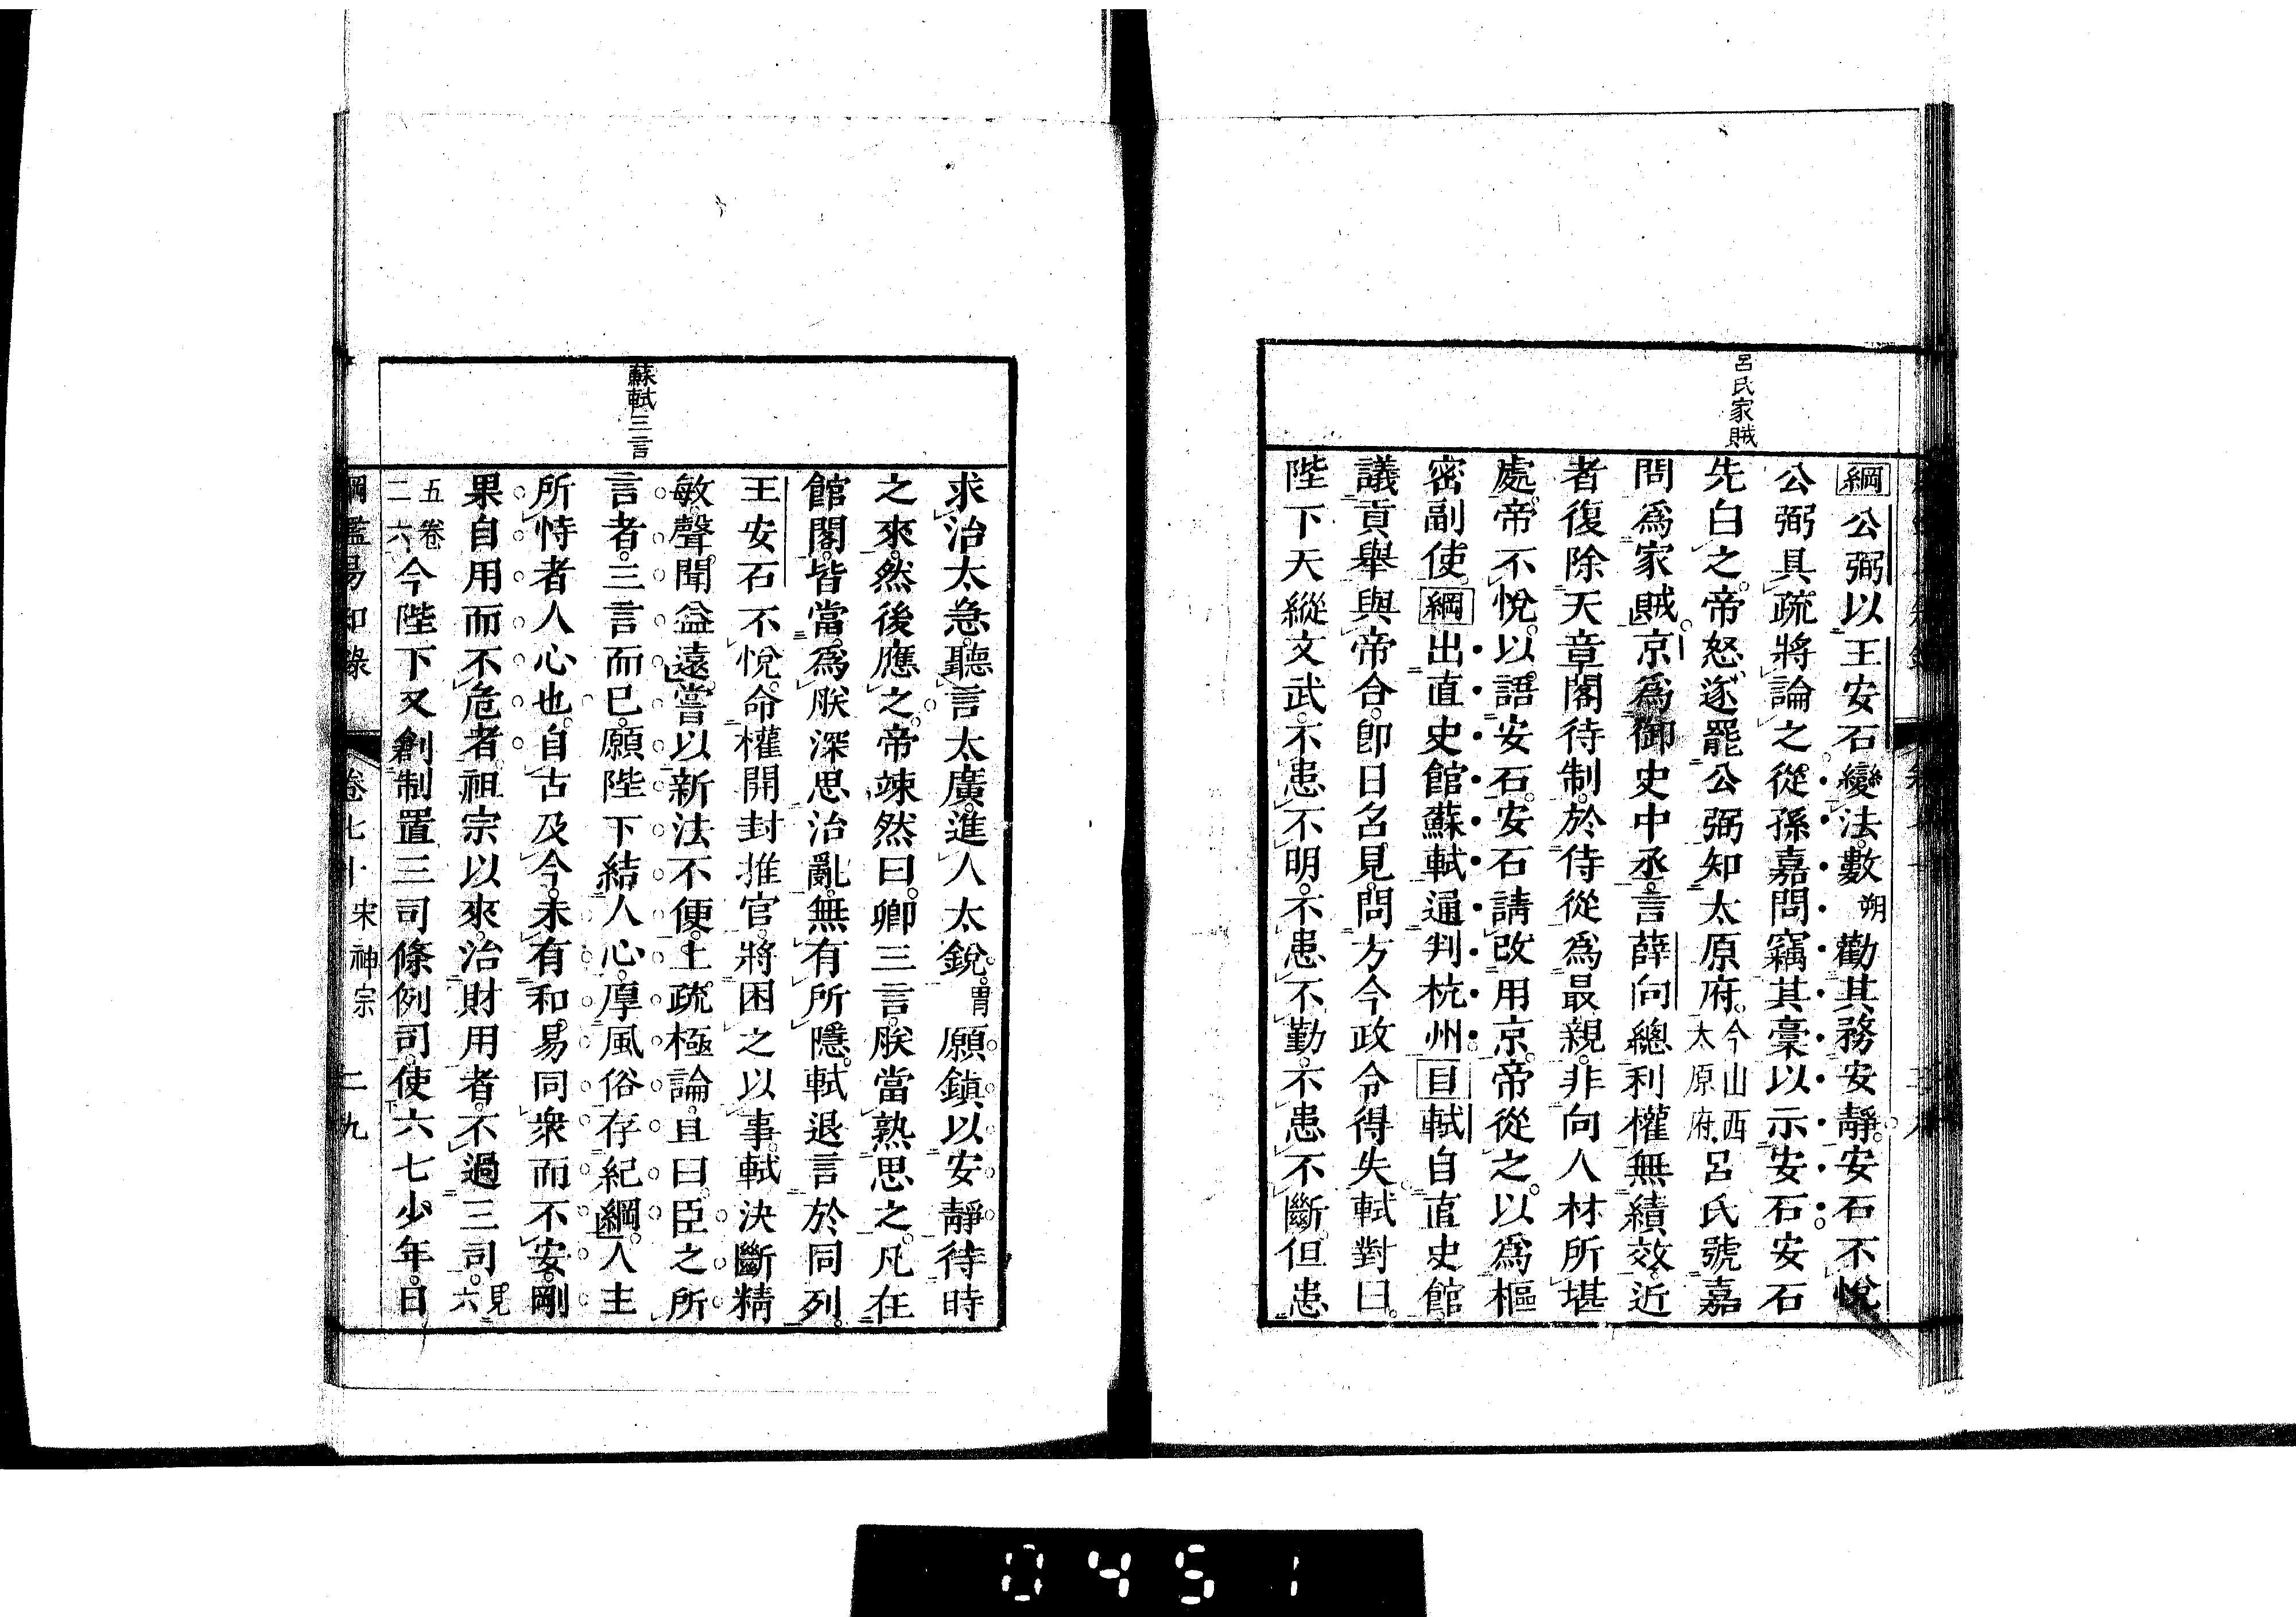 呂氏家賊
綱公弼以王安石變法數朔勸其務安靜安石不悅
公弼具疏將論之從孫嘉問竊其稾以示安石安石
先白之帝怒遂罷公弼知太原府今山西太原府呂氏號嘉
問爲家賊京爲御史中丞言薛向總利權無績效近
者復除天章閣待制於侍從爲最親非向人材所堪
處帝不悅以語安石安石請改用京帝從之以爲樞
密副使綱出直史館蘇軾通判杭州目軾自直史館
議貢舉與帝合卽日召見問方今政令得失軾對曰
陛下天縱文武不患不明不患不勤不患不斷但患
蘇軾三言
求治太急聽言太廣進人太銳胃願鎮以安靜待時
之來然後應之帝竦然曰卿三言朕當熟思之凡在
館閣皆當爲朕深思治亂無有所隱軾退言於同列
王安石不悅命權開封推官將困之以事軾決斷精
敏聲聞益遠嘗以新法不便上疏極論且曰臣之所
言者三言而已願陛下結人心厚風俗存紀綱人主
所恃者人心也自古及今未有和易同衆而不安剛
果自用而不危者祖宗以來治財用者不過三司見六
五卷二六今陛下又創制置三司條例司使六七少年日
綱鑑易知錄 卷七十 宋神宗 二九
0451